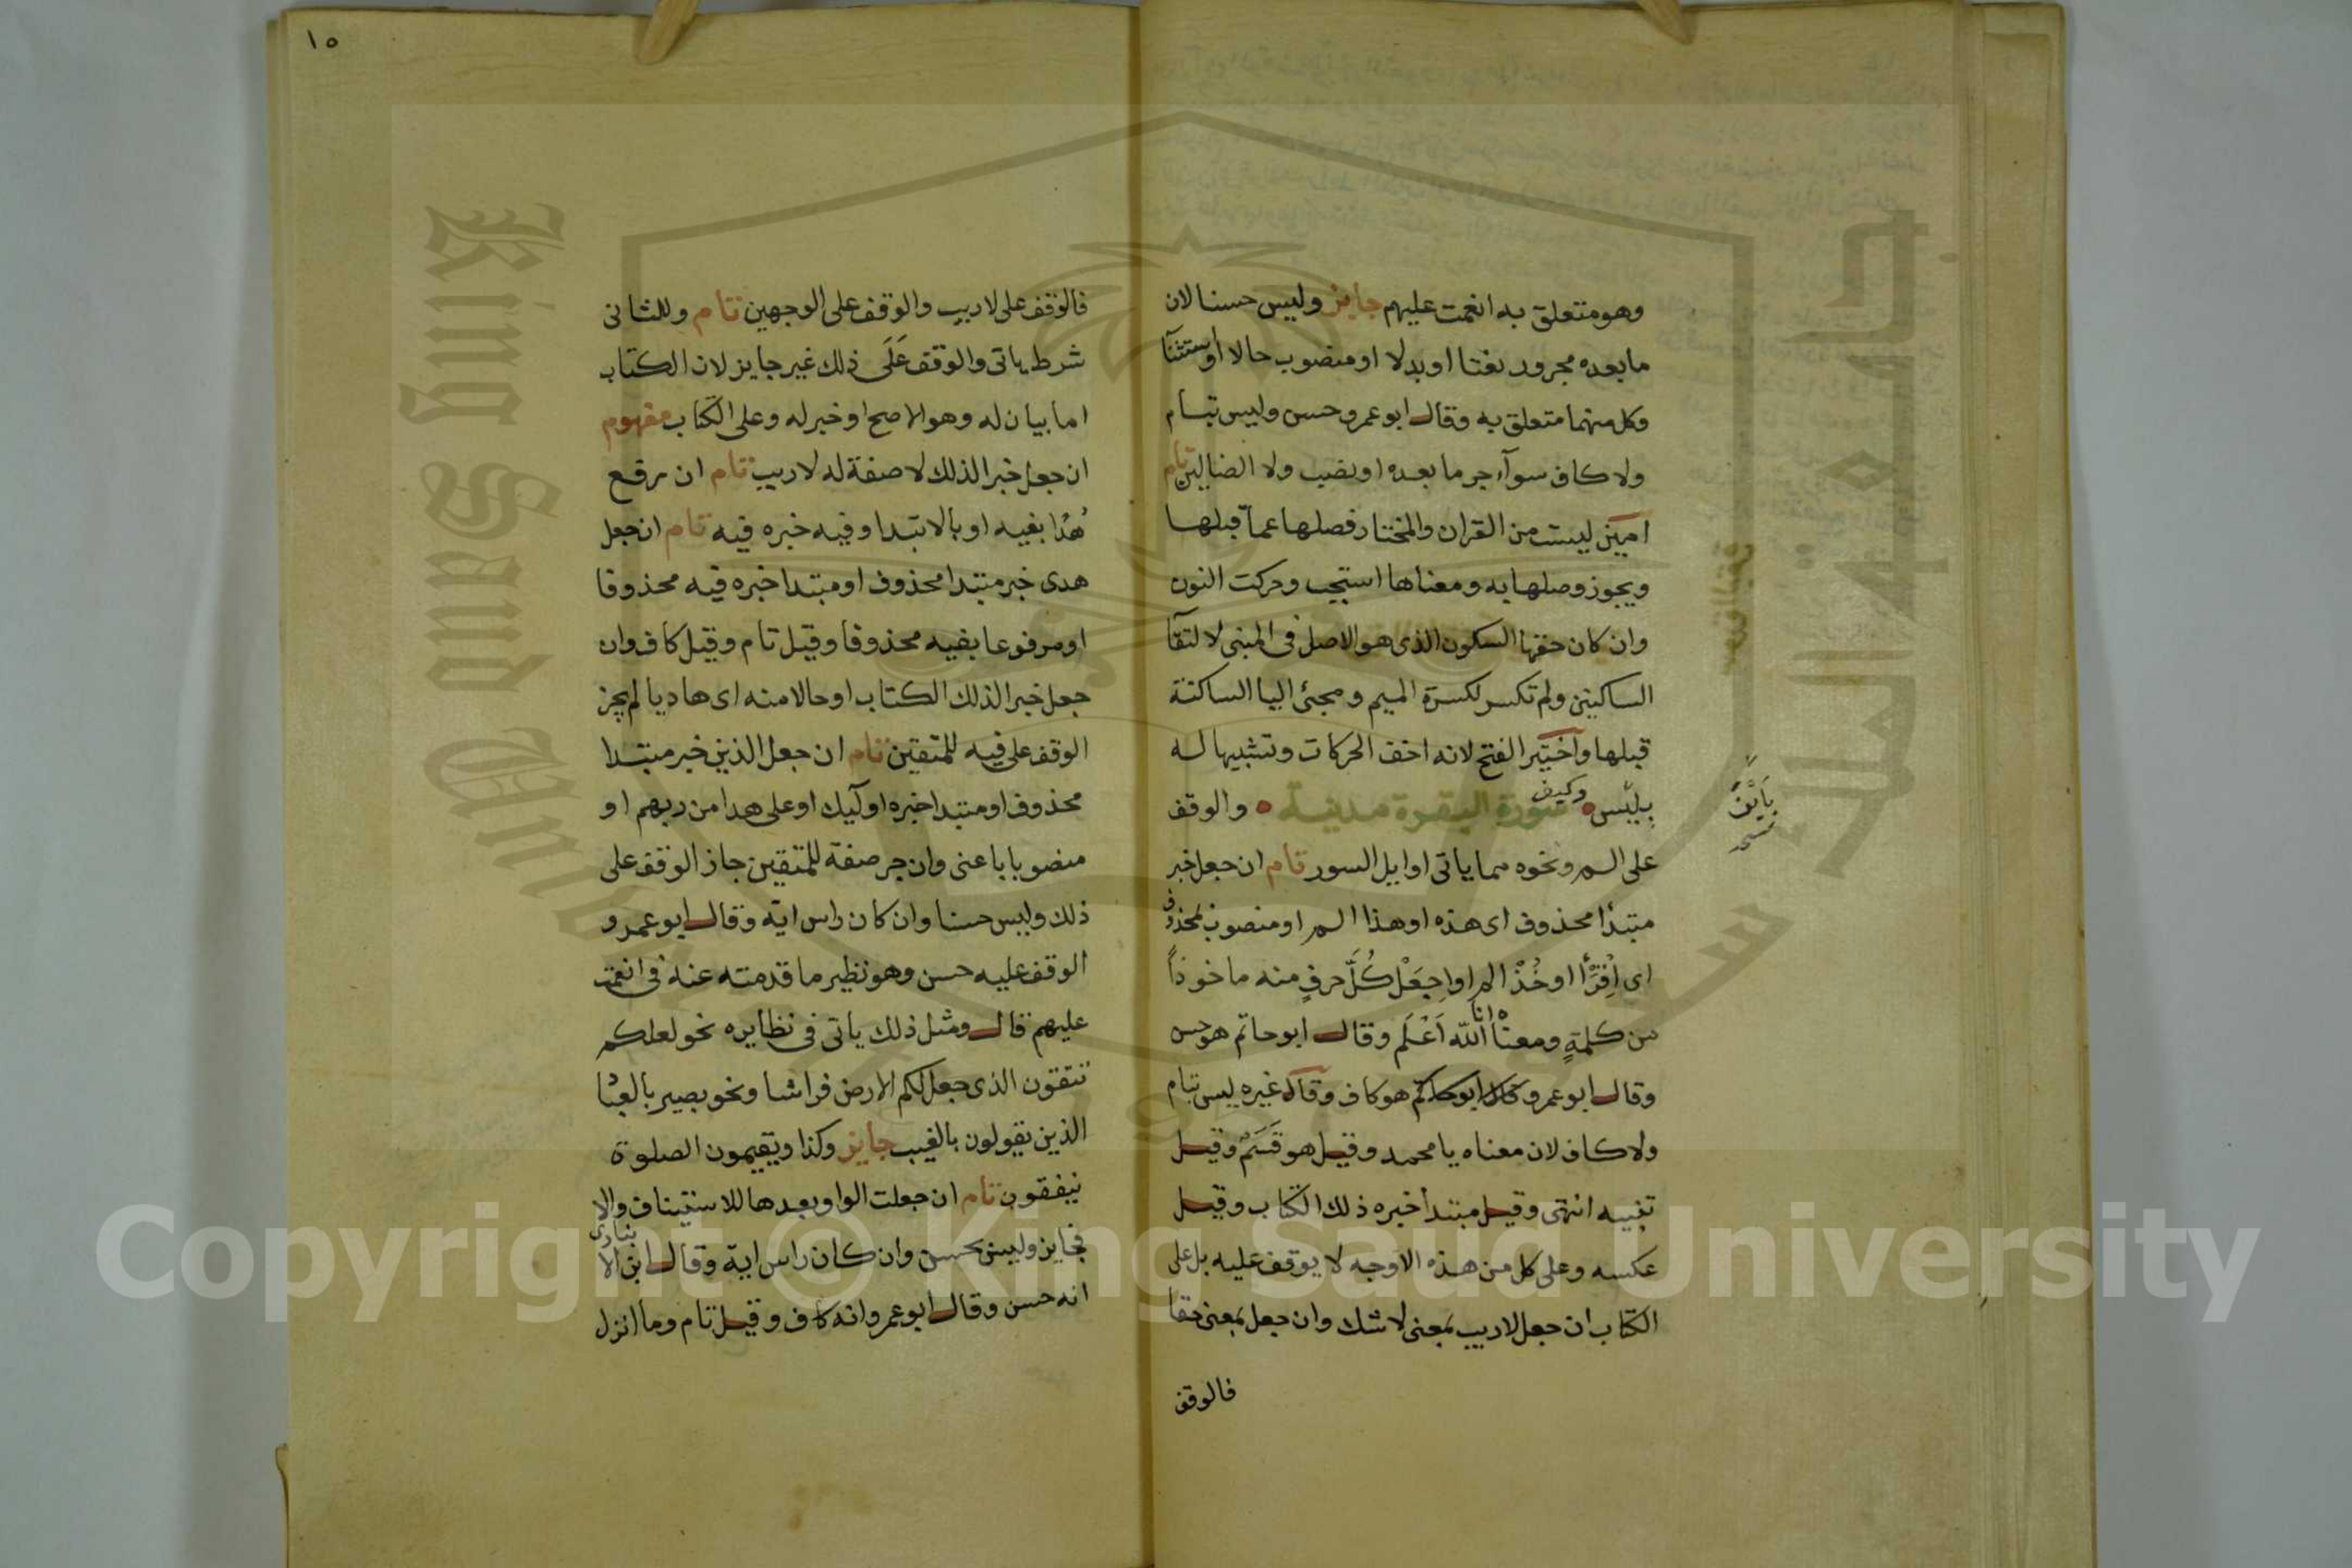 وهو متعلق به انعمت عليهم جايز وليس حسنا لان
ما بعده مجرور نعتا او بدلا او منصوب حالا او استثنآ
وكل منهما متعلق به وقال ابو عمرو حسن وليس بتام
ولا كاف سوآء جر ما بعده او نصب ولا الضالين تام
امين ليست من القران والمختار فصلها عما قبلها
ويجوز وصلها به ومعناها استجب وحركت النون
وان كان حقها السكون الذى هو الاصل فى المبنى لالتقآ
الساكنين ولم تكسر لكسرة الميم ومجئ اليا الساكنة
قبلها وآختير الفتح لانه اخف الحركات وتشبيها له
بليس وكيف سورة البقرة مدنية والوقف
بأين
نسخه
على الم ونحوه مما ياتى اوايل السور تام ان جعل خبر
مبتدأ محذوف اى هذه او هذا الم او منصوب بمحذوف
اى اِقْرَأ اوخُذْ الم اواِجعَلْ كُلَّ حرفٍ منه ماخوذاً
من كلمةٍ ومعناه انا الله اَعْلَم وقال ابو حاتم هو حسن
وقال ابو عمرو وقال ابو حاتم هو كاف وقال غيره ليس بتام
ولا كاف لان معناه يا محمد وقيل هو قَسَمٌ وقيل
تنبيه انتهى وقيل مبتدأ خبره ذلك الكتاب وقيل
عكسه وعلى كل من هذه الاوجه لا يوقف عليه بل على
الكتاب ان جعل لاريب بمعنى لاشك وان جعل بمعنى حقا
فالوقف
١٥
فالوقف على لاريب والوقف على الوجهين تام وللثانى
شرط ياتى والوقف عَلَى ذلك غير جايز لان الكتاب
اما بيان له وهو الاصح او خبر له وعلى الكتاب مفهوم
ان جعل خبرا لذلك لا صفة له لاريب تام ان رفع
هُدًا بفيه او بالابتدا وفيه خبره فيه تام ان جعل
هدى خبر مبتدا محذوف او مبتدا خبره فيه محذوفا
او مرفوعا بفيه محذوفا وقيل تام وقيل كاف وان
جعل خبرا لذلك الكتاب او حالا منه اى هاديا لم يجز
الوقف على فيه للمتقين تام ان جعل الذين خبر مبتدا
محذوف او مبتدا خبره اولٓيك او على هدا من ربهم او
منصوبا باعنى وان جر صفة للمتقين جاز الوقف على
ذلك وليس حسنا وان كان راس اية وقال ابو عمرو
الوقف عليه حسن وهو نظير ما قدمته عنه فى انعمت
عليهم قال ومثل ذلك ياتى فى نظايره نحو لعلكم
تتقون الذى جعل لكم الارض فراشا ونحو بصير بالعبا
الذين يقولون بالغيب جايز وكذا ويقيمون الصلوة
ينفقون تام ان جعلت الواو بعدها للاستيناف والا
فجايز وليس بحسن وان كان راس اية وقال ابن الانبارى
انه حسن وقال ابو عمرو انه كاف وقيل تام وما انزل
Copyright © King Saud University
King Saud University